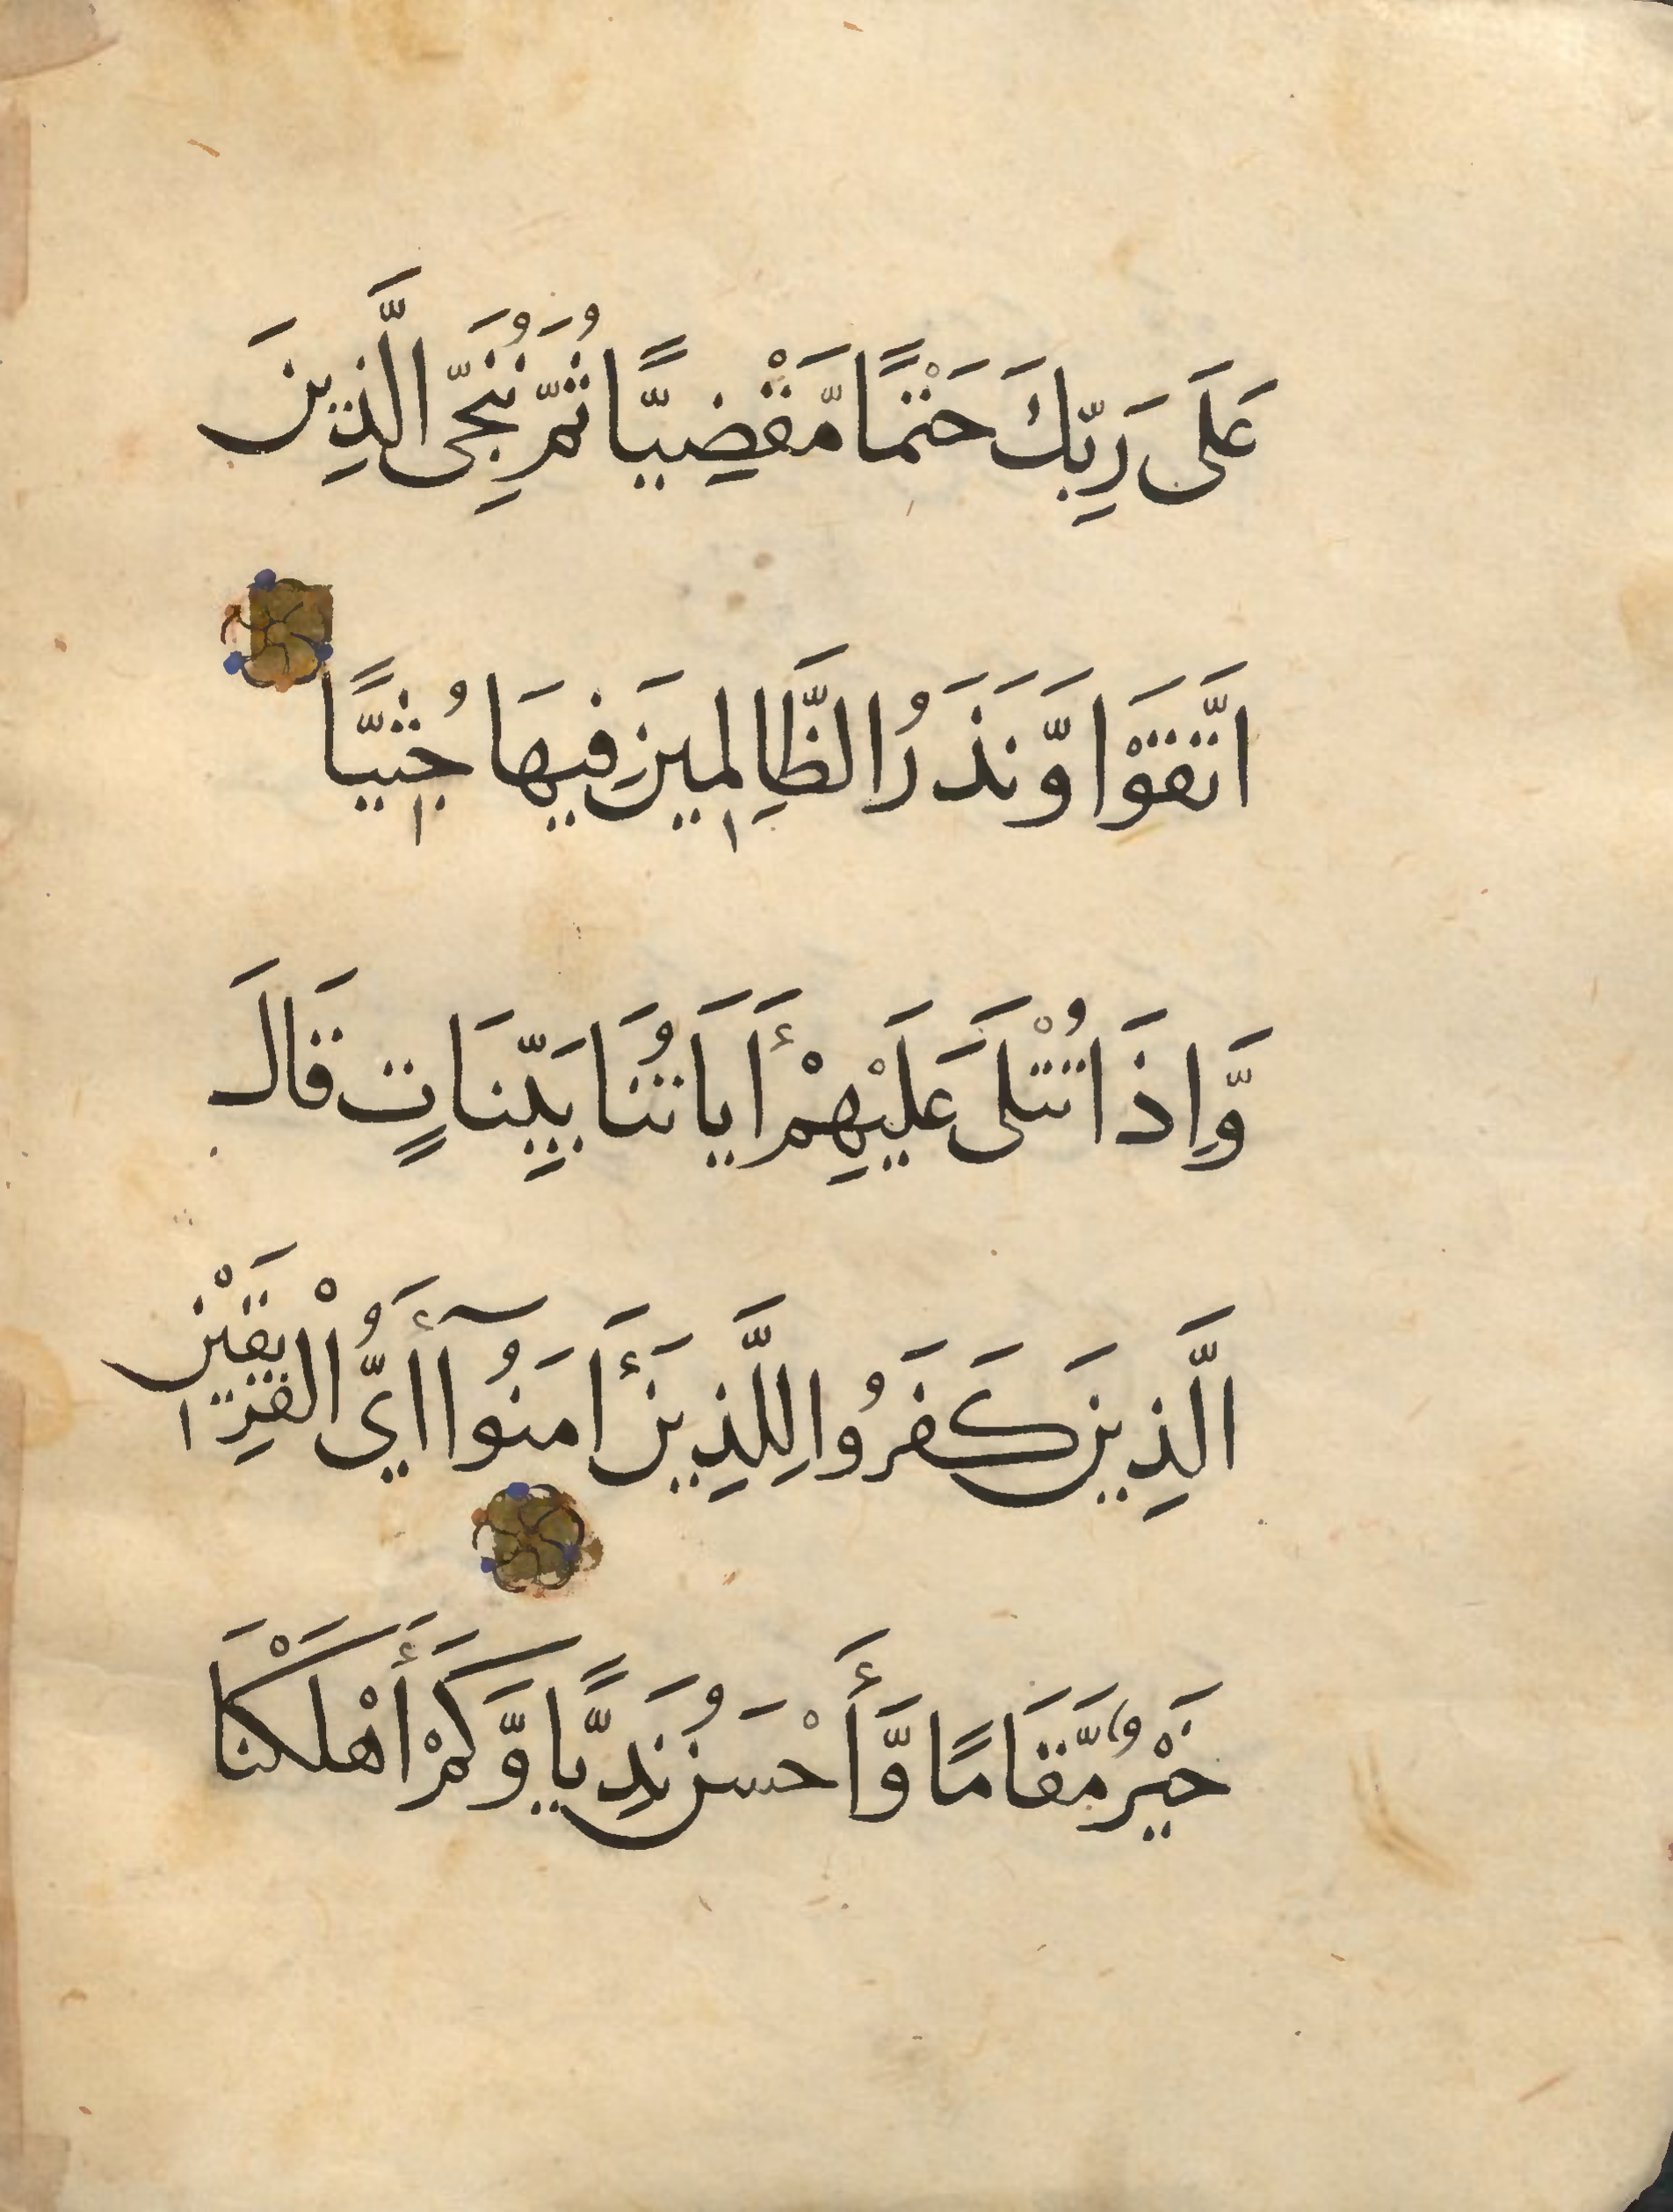 عَلَى رَبِّكَ حَتْمًا مَّقْضِيًّا ثُمَّ نُنَجِّى الَّذِينَ
اتَّقَوْا وَّنَذَرُ الظَّالِمِينَ فِيهَا جُثِيًّا
وَّإِذَا تُتْلَى عَلَيْهِمْ أَايَاتُنَا بَيِّنَاتٍ قَالَ
الَّذِينَ كَفَرُوا لِلَّذِينَ أَامَنُوآ أَيُّ الْفَرِيقَيْنِ
خَيْرٌ مَّقَامًا وَّأَحْسَنُ نَدِيًّا وَّكَمْ أَهْلَكْنَا